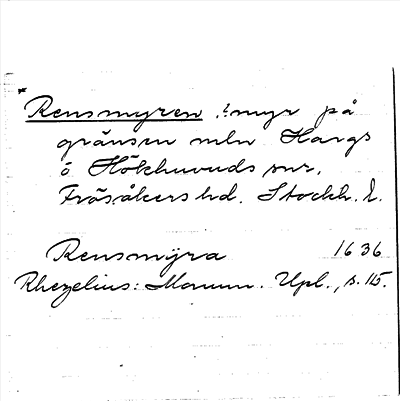 Rensmyren, ?: myr på
gränsen mln Hargs
o Hökhuvuds snr,
Frösåkers hd. Stockh. l.
Rensmÿra 1636
Rhezelius: Monum. Upl., s. 15.